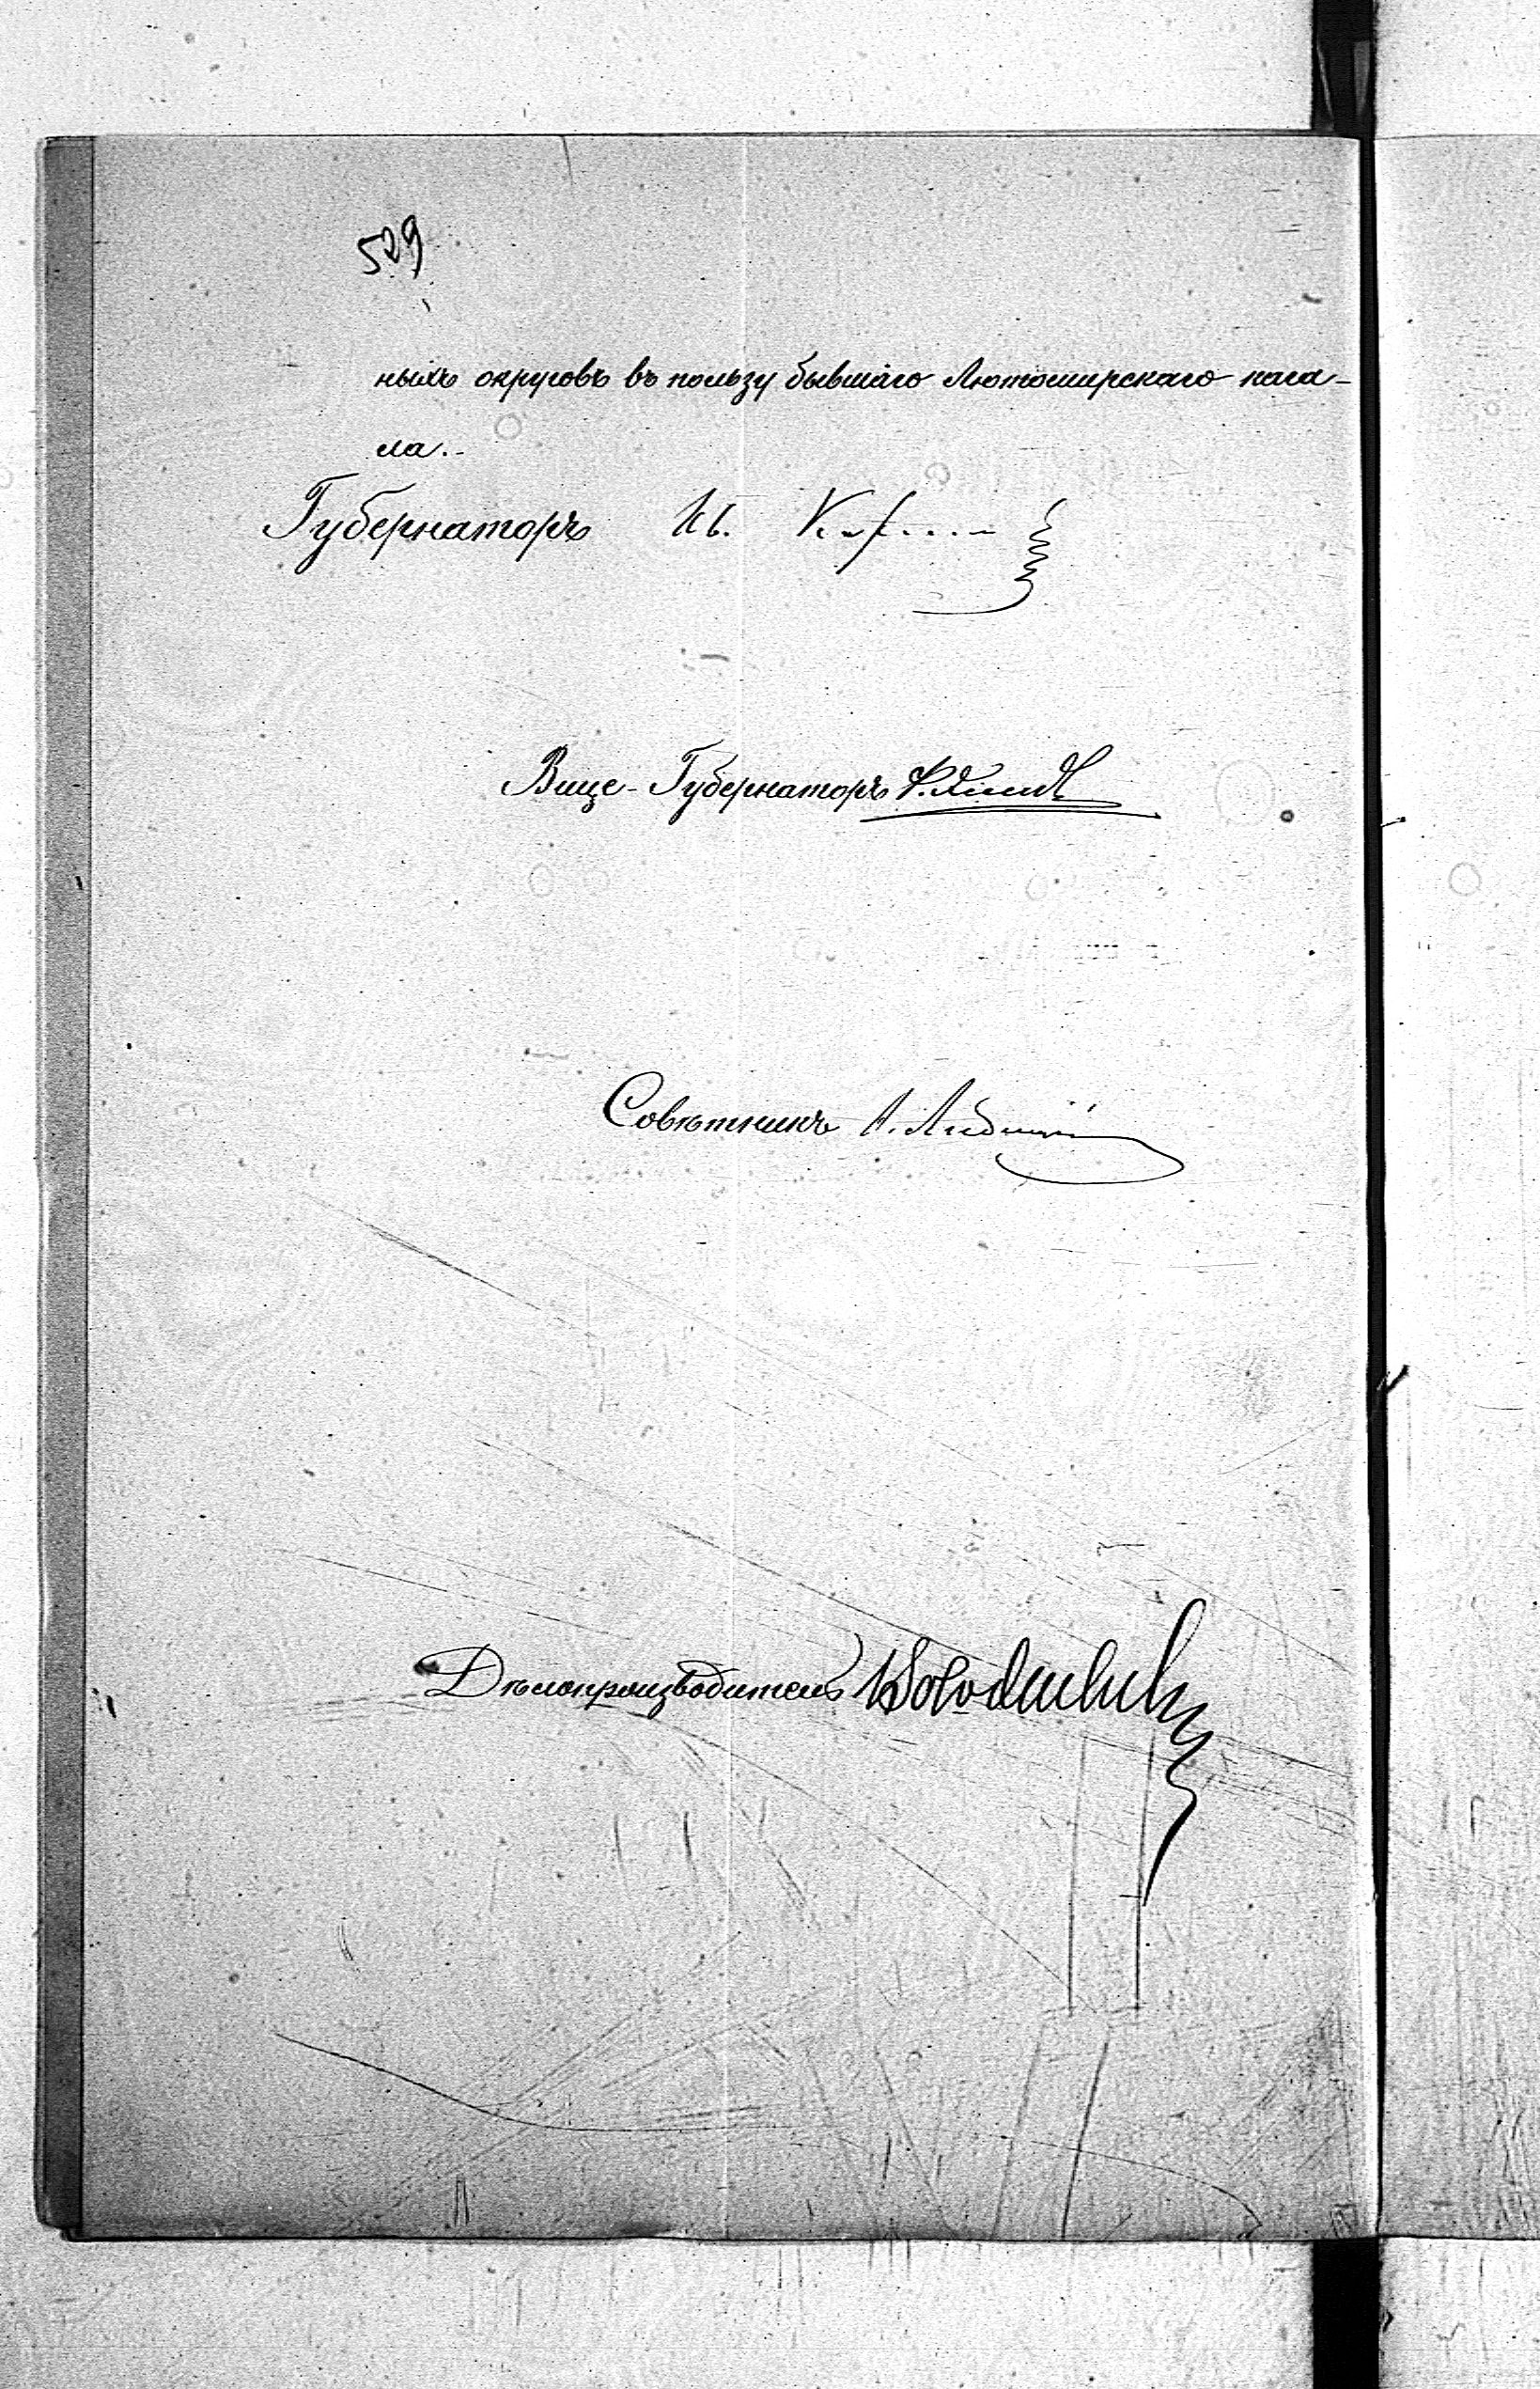 529
ныхъ округовъ въ пользу бывшаго Лютомирскаго кага-
ла.-
Губернаторъ
Вице-Губернаторъ
Совѣтникъ
Дѣлопроизводитель